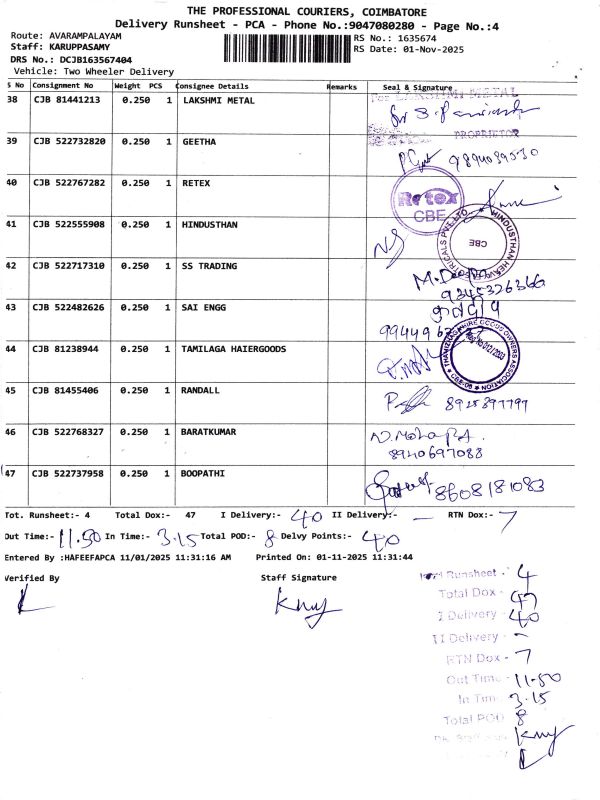 THE PROFESSIONAL COURIERS, COIMBATORE
Delivery Runsheet - PCA - Phone No.:9047080280 - Page No.:4
Route: AVARAMPALAYAM
Staff: KARUPPASAMY
RS No.: 1635674
DRS No.: DCJB163567404
RS Date: 01-Nov-2025
Vehicle: Two Wheeler Delivery
S No Consignment No Weight PCS Consignee Details Remarks Seal & Signature
38 CJB 81441213 0.250 1 LAKSHMI METAL
For LAKSHMI METAL
PROPRIETOR
39 CJB 522732820 0.250 1 GEETHA
9894039530
40 CJB 522767282 0.250 1 RETEX
Retex
CBE
41 CJB 522555908 0.250 1 HINDUSTHAN
CBE
42 CJB 522717310 0.250 1 SS TRADING
M. Deepa
9345326366
43 CJB 522482626 0.250 1 SAI ENGG
44 CJB 81238944 0.250 1 TAMILAGA HAIERGOODS
45 CJB 81455406 0.250 1 RANDALL
8925897797
46 CJB 522768327 0.250 1 BARATKUMAR
8940697088
47 CJB 522737958 0.250 1 BOOPATHI
8608181083
Tot. Runsheet:- 4 Total Dox:- 47 I Delivery:- 40 II Delivery:- — RTN Dox:- 7
Out Time :- 11.50 In Time:- 3.15 Total POD:- 8 Delvy Points:- 40
Entered By :HAFEEFAPCA 11/01/2025 11:31:16 AM Printed On: 01-11-2025 11:31:44
Verified By Staff Signature
Runsheet - 4
Total Dox - 47
I Delivery - 40
II Delivery - –
RTN Dox - 7
Out Time - 11.50
In Time - 3.15
Total POD - 8